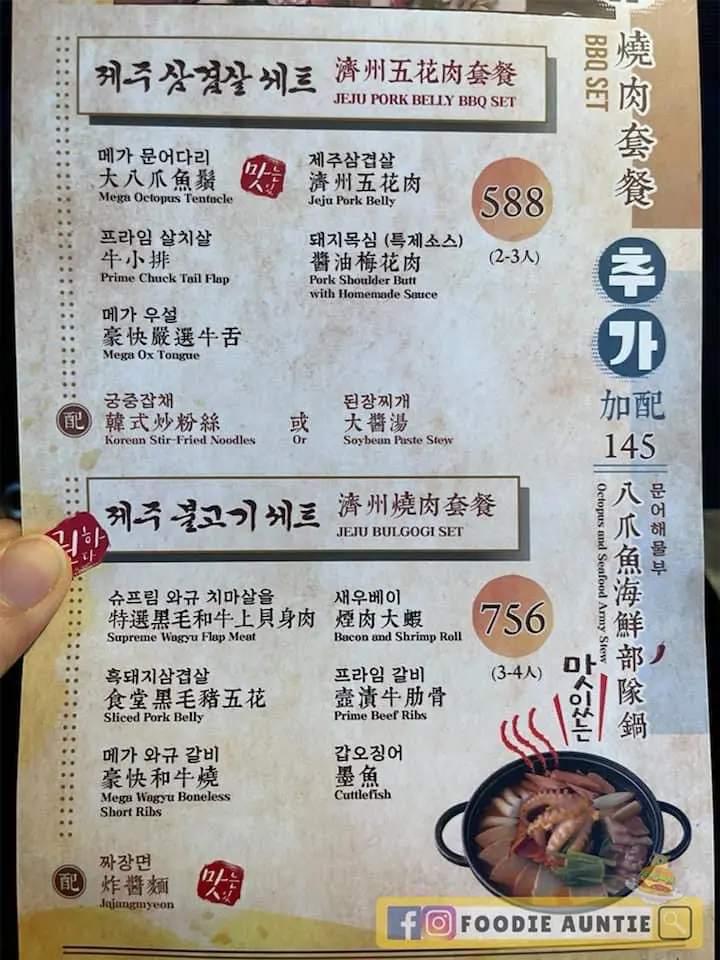 燒肉套餐
BBQ SET
제주 삼겹살 세트
濟州五花肉套餐
JEJU PORK BELLY BBQ SET
메가 문어다리
大八爪魚鬚
Mega Octopus Tentacle
맛있는
제주삼겹살
濟州五花肉
Jeju Pork Belly
588
(2-3人)
프라임 살치살
牛小排
Prime Chuck Tail Flap
돼지목심 (특제소스)
醬油梅花肉
Pork Shoulder Butt
with Homemade Sauce
메가 우설
豪快嚴選牛舌
Mega Ox Tongue
配
궁중잡채
韓式炒粉絲
Korean Stir-Fried Noodles
或
Or
된장찌개
大醬湯
Soybean Paste Stew
제주 불고기 세트
濟州燒肉套餐
JEJU BULGOGI SET
슈프림 와규 치마살을
特選黑毛和牛上貝身肉
Supreme Wagyu Flap Meat
새우베이
煙肉大蝦
Bacon and Shrimp Roll
756
(3-4人)
흑돼지삼겹살
食堂黑毛豬五花
Sliced Pork Belly
프라임 갈비
壺漬牛肋骨
Prime Beef Ribs
메가 와규 갈비
豪快和牛燒
Mega Wagyu Boneless
Short Ribs
갑오징어
墨魚
Cuttlefish
配
짜장면
炸醬麵
Jajangmyeon
맛있는
추가
加配
145
문어해물부
八爪魚海鮮部隊鍋
Octopus and Seafood Army Stew
맛있는
FOODIE AUNTIE